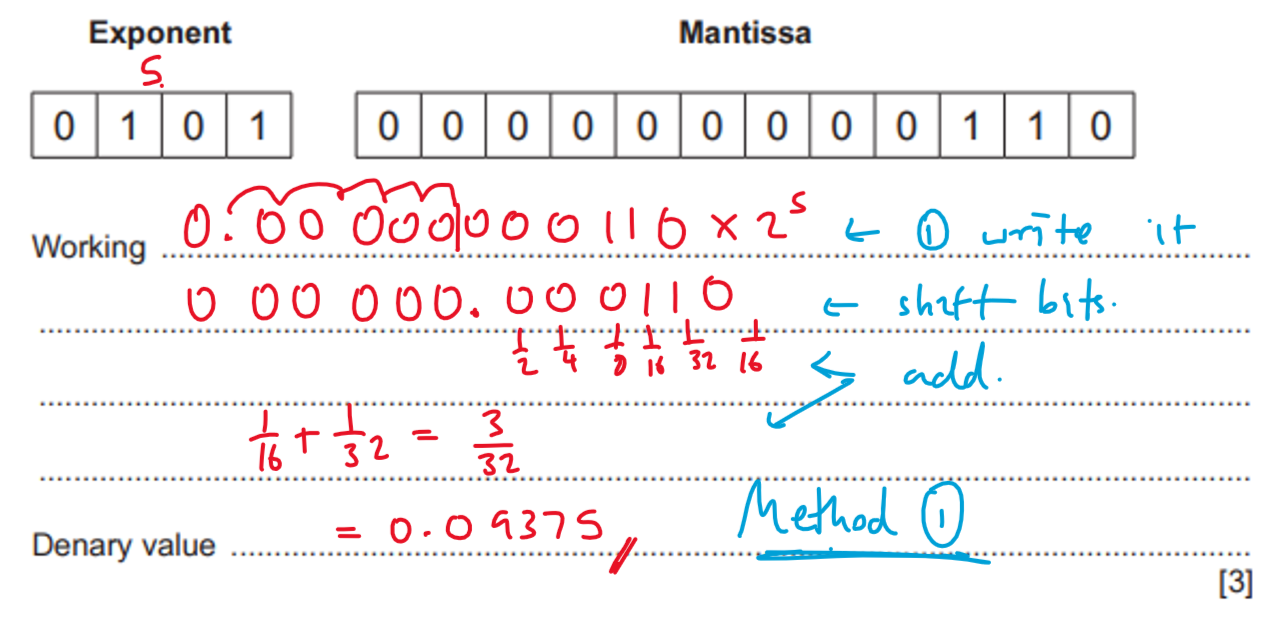 Exponent Mantissa
5
0 1 0 1 0 0 0 0 0 0 0 0 0 1 1 0
Working 0.00 000|000110 × 2^5 ← ① write it
0 00 000. 000110 ← shift bits.
1/2 1/4 1/8 1/16 1/32 1/16 ← add.
1/16 + 1/32 = 3/32
Denary value = 0.09375 Method ①
[3]